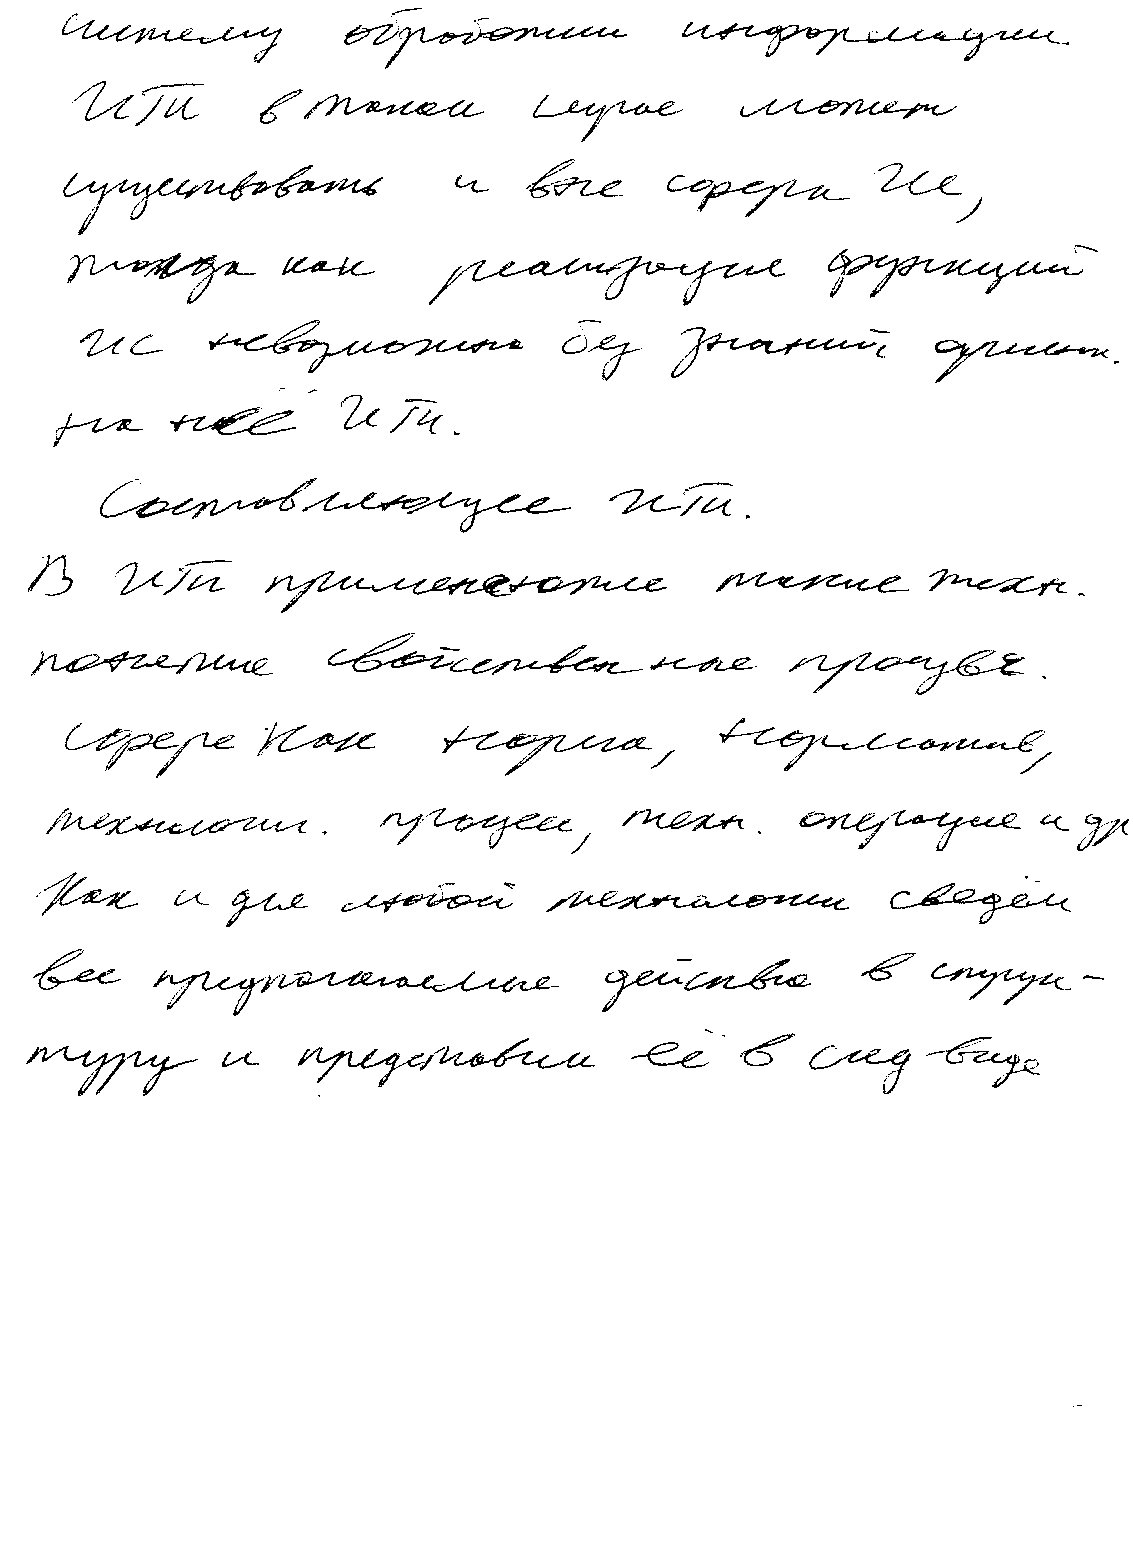 систему обработки информации
ИТи в таком случае может
существовать и вне сферы ИС,
тогда как реализация функций
ИС невозможна без знаний ориент.
на неё ИТи.
Составляющие ИТи.
В ИТи применяются такие техн.
понятия свойственные произв.
сфере как норма, норматив,
технологич. процесс, техн. операция и др
Как и для любой технологии сведём
все предполагаемые действия в струк-
туру и представим её в след виде